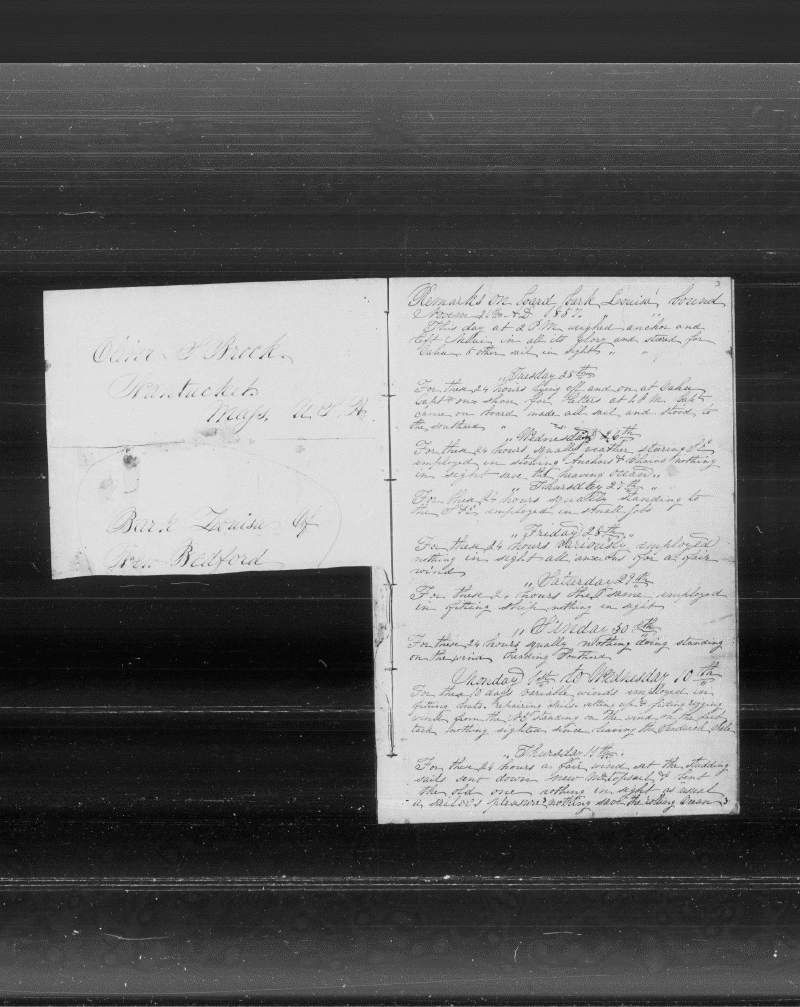 Oliver S Brock.
Nantucket
Mass. U. S. A.
Bark Louisa Of
New Bedford
3
Remarks on board bark Louisa bound
Novem 1857.
This day at 2 P.M. weighed anchor and
left in all its glory and steered for
Oahu 5 other sail in sight " "
" Tuesday 25th
For these 24 hours lying off and on at Oahu
Capt on shore for letters at P.M. Capt
came on board made all sail and stood to
the southard "
" Wednesday 26th
For these 24 hours squally weather steering
employed in stowing Anchors & Chains nothing
in sight save the heaving Ocean "
" Thursday 27th "
For these 24 hours squally standing to
the employed in small Jobs
" Friday 28th "
For these 24 hours variously employed
nothing in sight all anxious for a fair
wind
" Saturday 29th
For these 24 hours the same employed
in fitting ship nothing in sight
" Sunday 30th
For these 24 hours squally nothing doing standing
on the wind heading
Monday 1st to Wednesday 10th
For these 10 days variable winds employed in
fitting boats. repairing sails setting up & fitting rigging
wind from the standing on the wind on the
tack nothing sighted since leaving the Sandwich Isles
" Thursday 11th.
For these 24 hours a fair wind set the studding
sails sent down new topsail & bent
the old one nothing in sight as usual
a sailor's pleasure nothing save the rolling Ocean